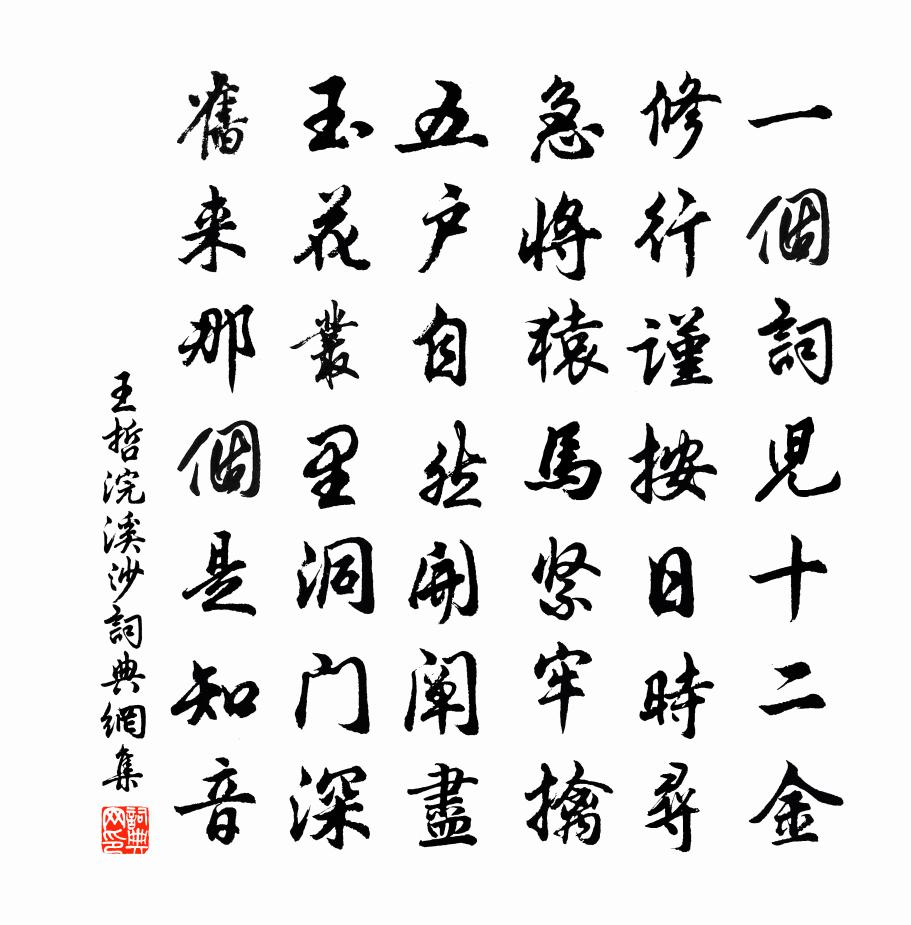 一個詞兒十二金
修行謹按日時尋
急將猿馬緊牢擒
五户自然開闡盡
玉花叢里洞门深
舊来那個是知音
王哲浣溪沙詞典網集
詞典网印